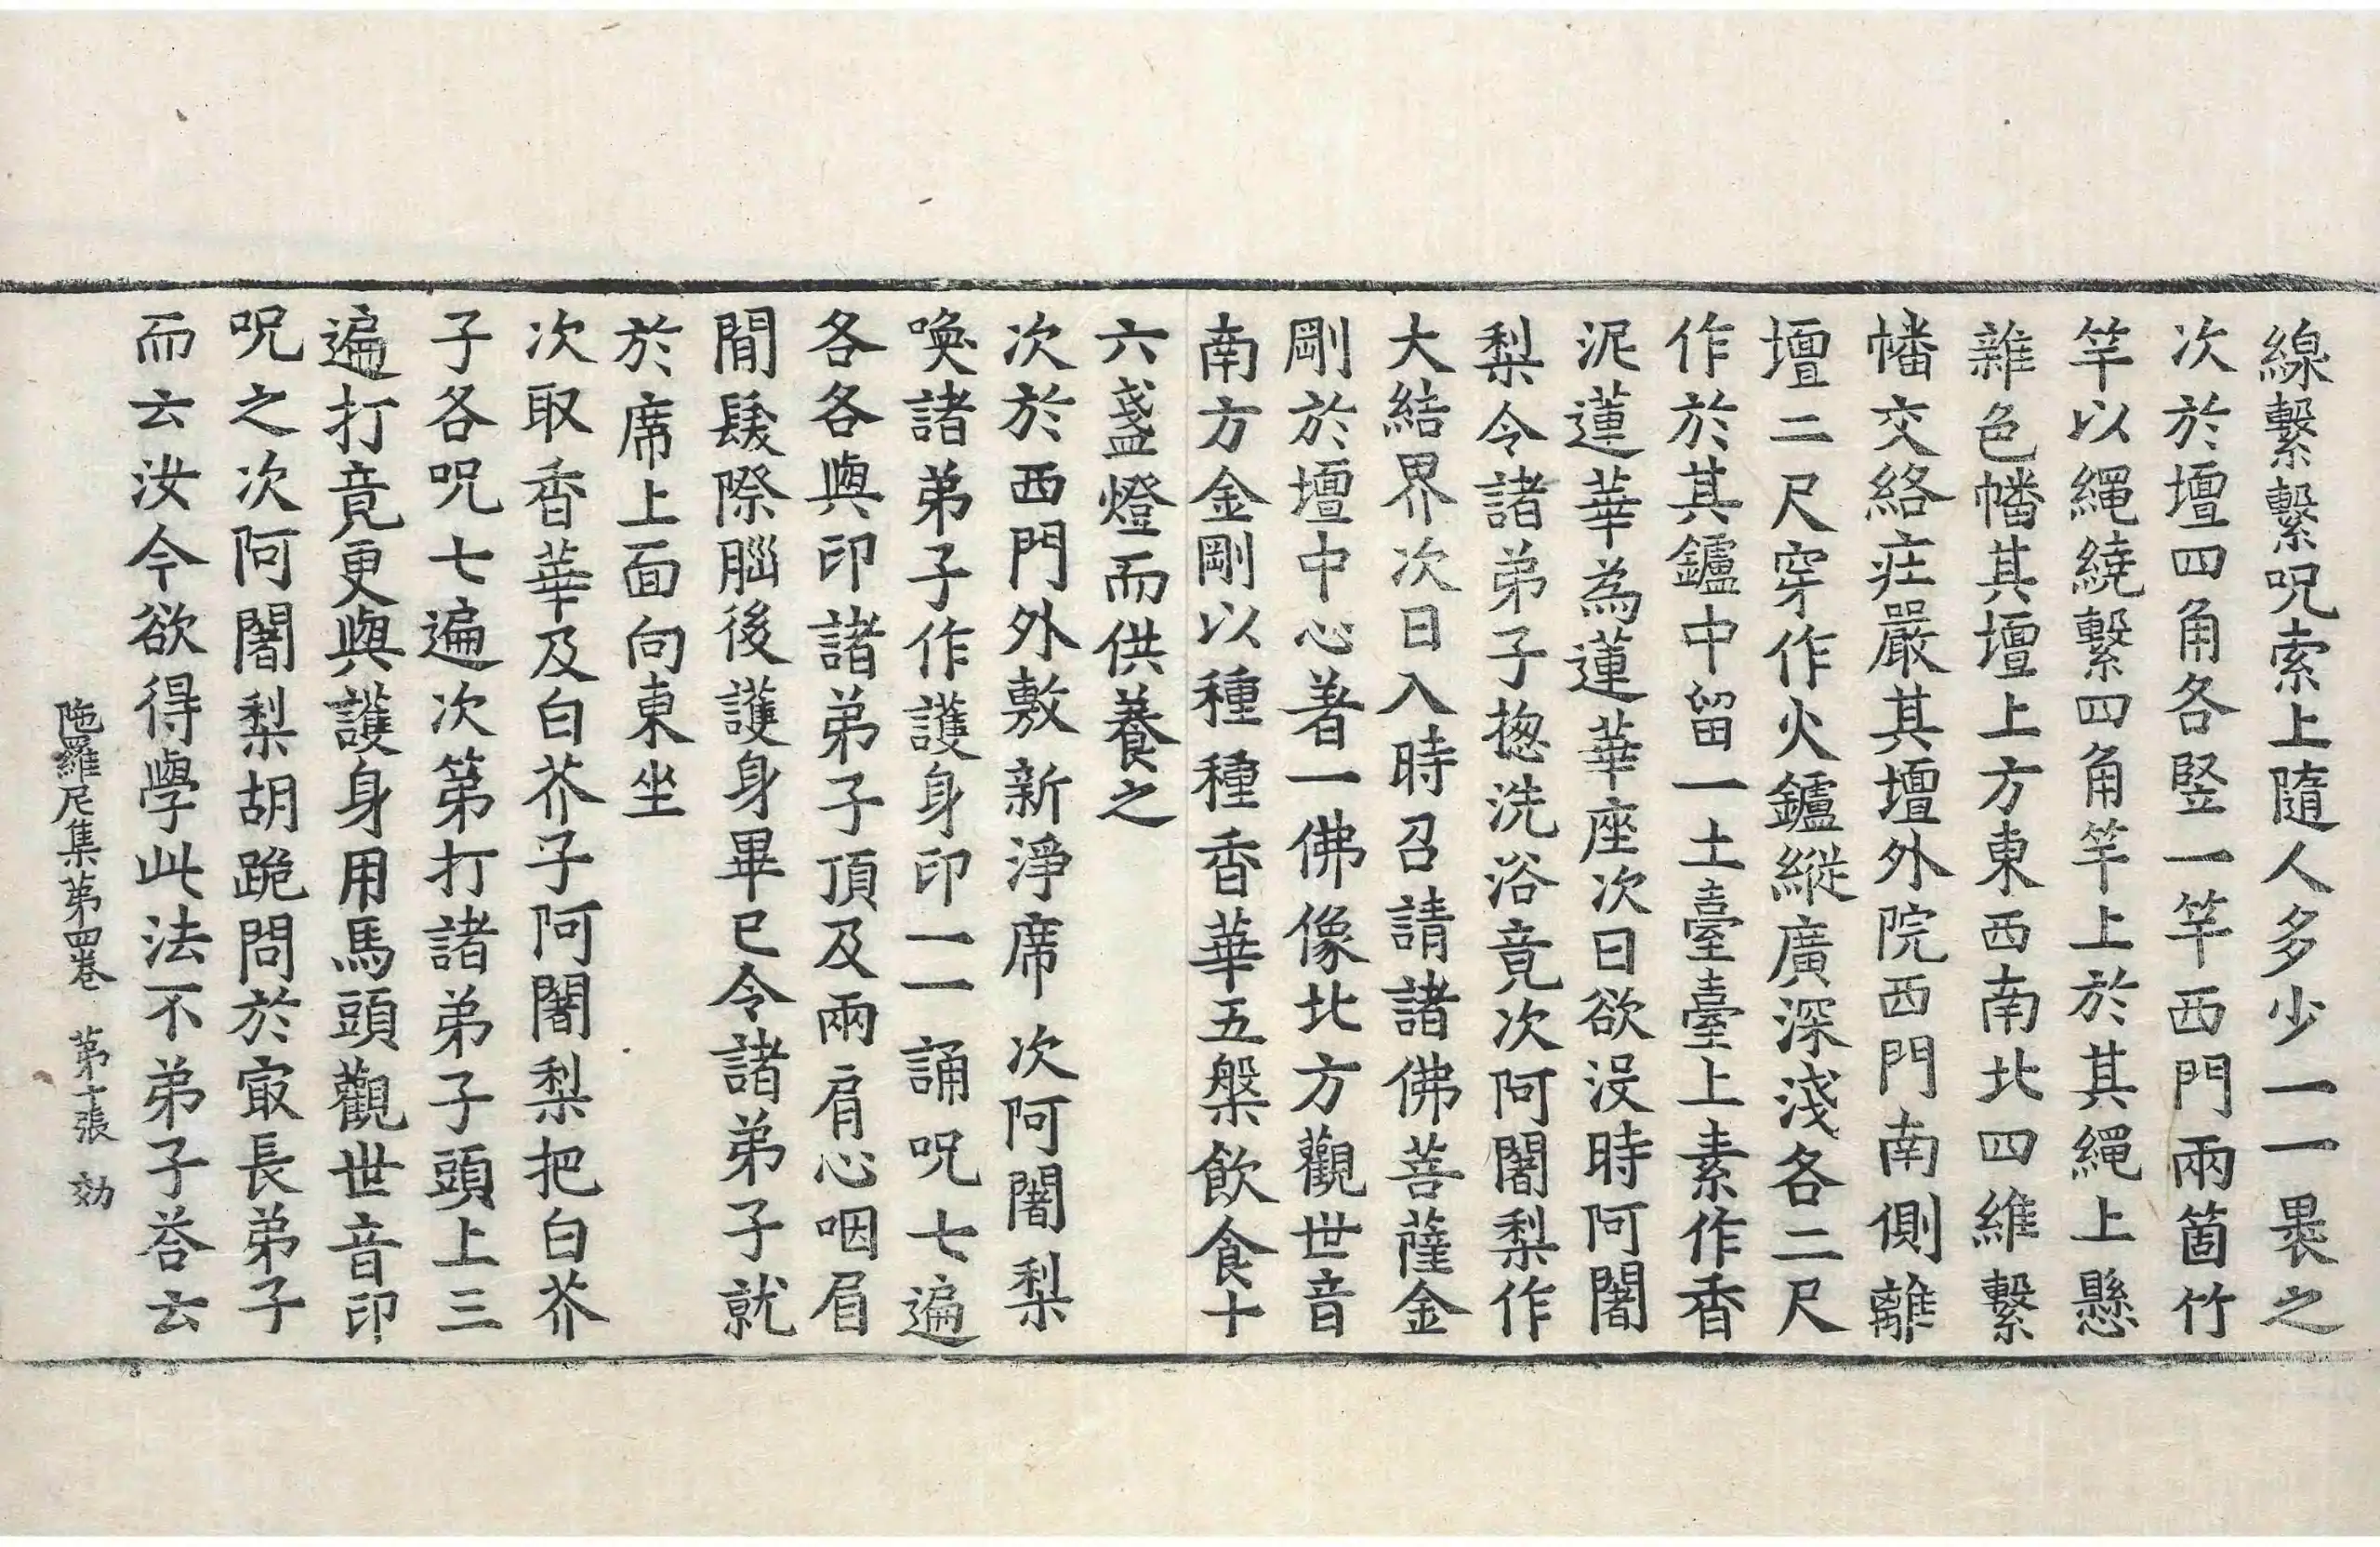 線繫繫呪索上隨人多少一一褁之
次於壇四角各竪一竿西門兩箇竹
竿以繩繞繫四角竿上於其繩上懸
雜色幡其壇上方東西南北四維繫
幡交絡莊嚴其壇外院西門南側離
壇二尺穿作火鑪縱廣深淺各二尺
作於其鑪中留一土臺臺上素作香
泥蓮華為蓮華座次日欲没時阿闍
梨令諸弟子揔洗浴竟次阿闍梨作
大結界次日入時召請諸佛菩薩金
剛於壇中心著一佛像北方觀世音
南方金剛以種種香華五槃飲食十
六盞燈而供養之
次於西門外敷新淨席次阿闍梨
喚諸弟子作護身印一一誦呪七遍
各各與印諸弟子頂及兩肩心咽眉
閒髮際腦後護身畢已令諸弟子就
於席上面向東坐
次取香華及白芥子阿闍梨把白芥
子各呪七遍次第打諸弟子頭上三
遍打竟更與護身用馬頭觀世音印
呪之次阿闍梨胡跪問於㝡長弟子
而云汝今欲得學此法不弟子荅云
陁羅尼集第四卷 第十張 効